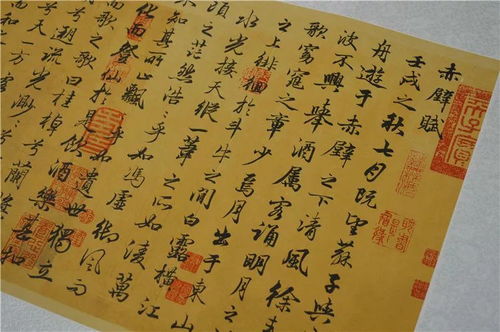 赤壁賦
壬戌之秋七月既望蘇子與
舟遊于赤壁之下清風徐来
波不興舉酒属客誦明月之
歌窈窕之章少焉月出于東山
之上徘徊於斗牛之間白露橫江
水光接天縱一葦之所如凌萬
頃之茫然浩浩乎如馮虛御風而
不知其所止飄飄乎如遺世獨立
化而登仙於是飲酒樂甚扣
而歌之歌曰桂棹兮蘭槳
兮遡流光渺渺兮
天一方客